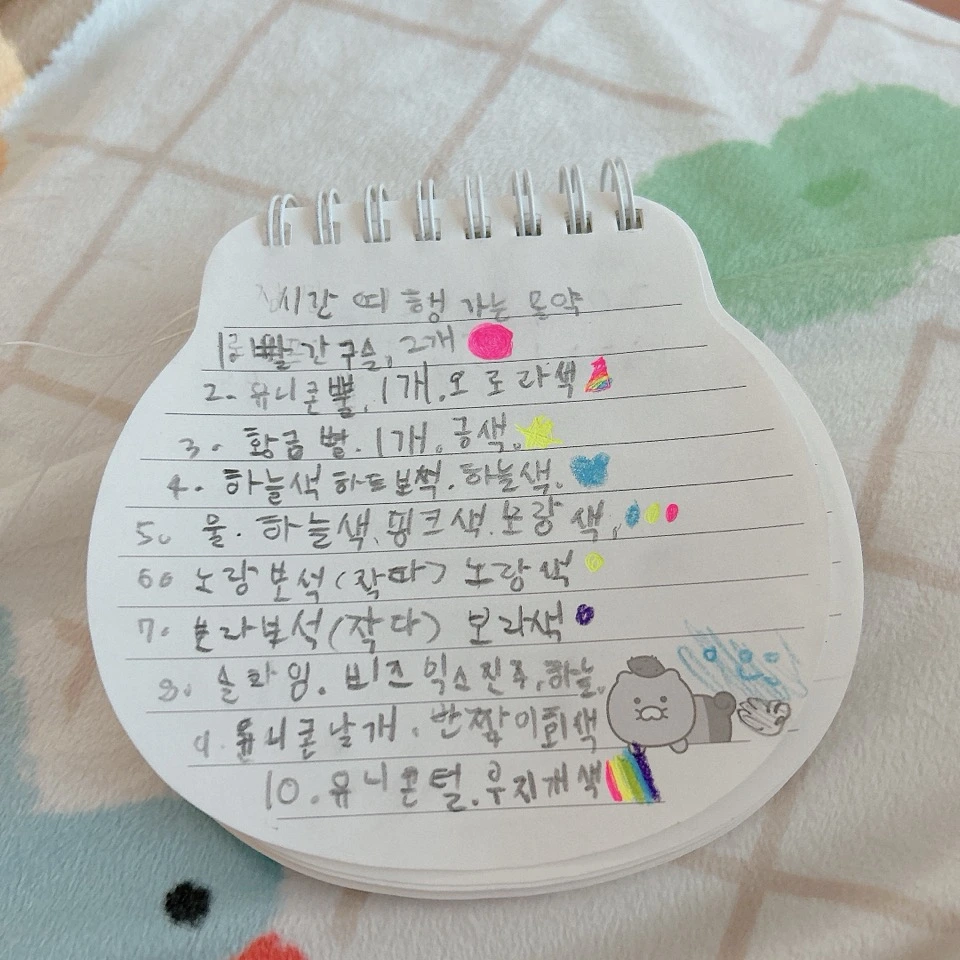 시간 떼 행 가는 모약
1. 빨간구슬, 2개
2. 유니콘뿔, 1개, 오로라색
3. 황금 별. 1개. 금색.
4. 하늘색 하트보석. 하늘색.
5. 물. 하늘색, 핑크색. 노랑색,
6. 노랑보석(작따) 노랑색
7. 보라보석(작다) 보라색
8. 슬라임. 비즈 믹스 진주, 하늘,
9. 유니콘날개. 반짝이회색
10. 유니콘털. 무지개색